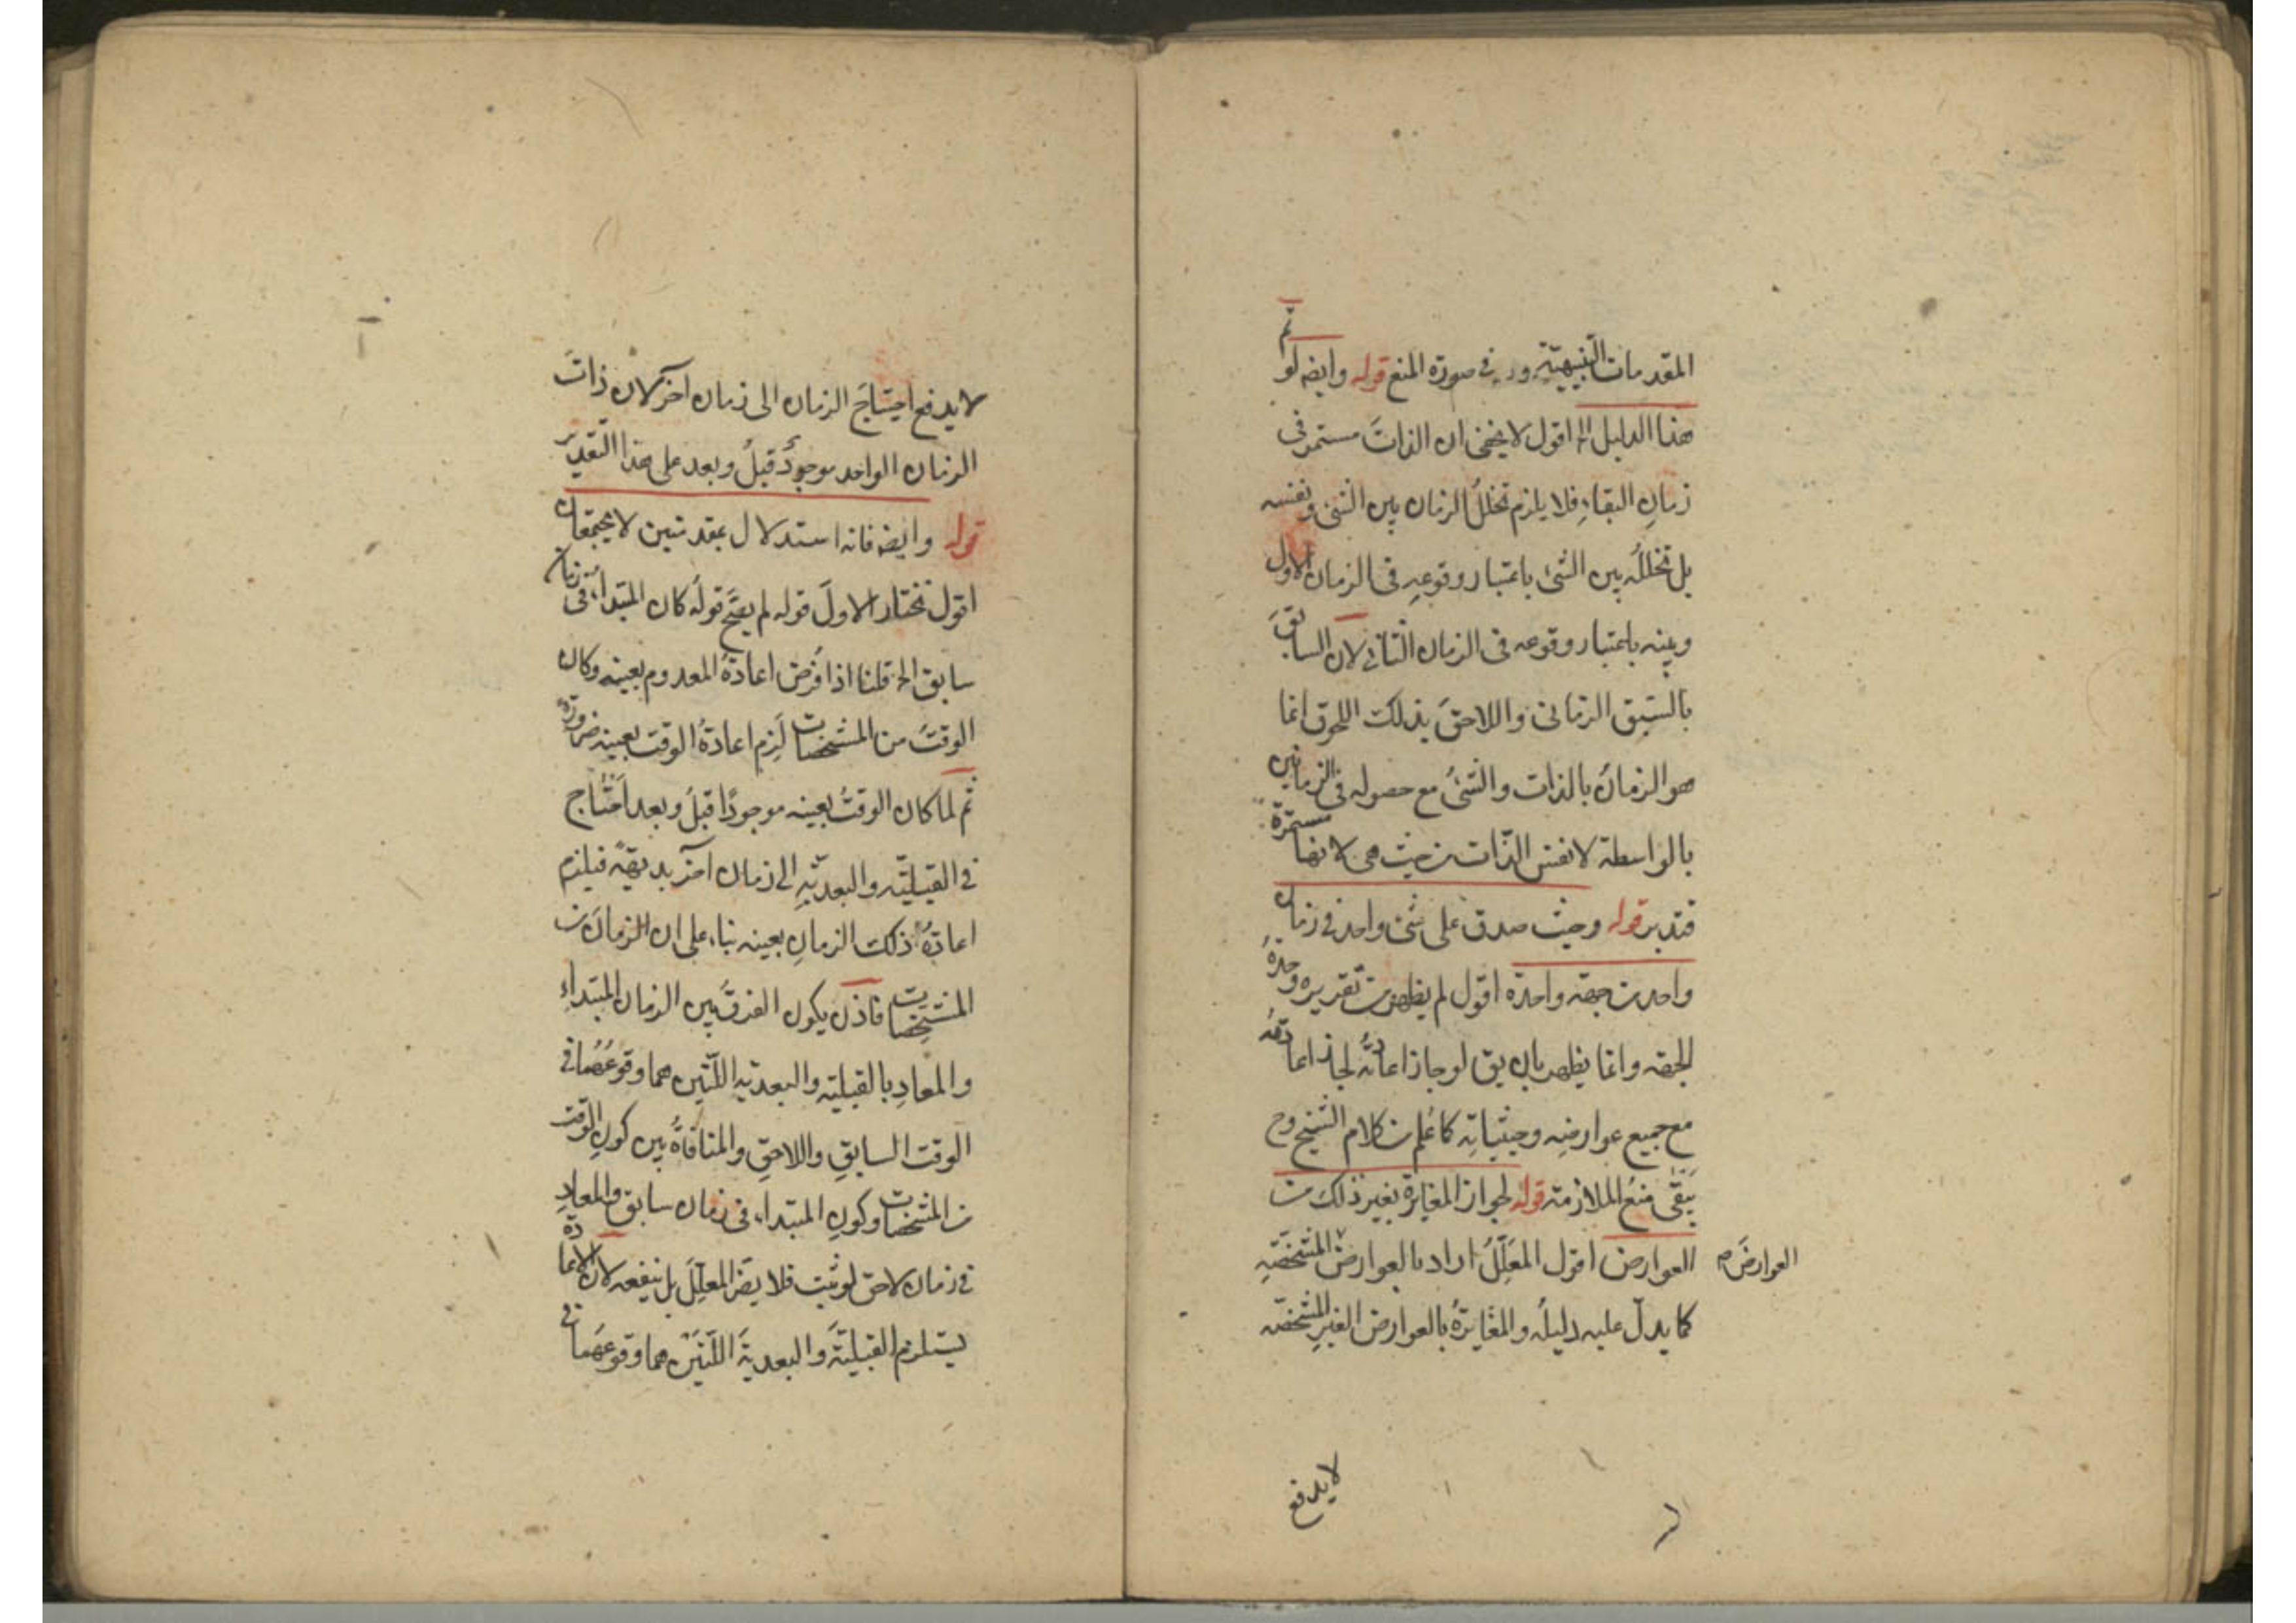 المقدمات التنبيهيّة في صورة المنع قوله وايضه لو تم
هذا الدليل الخ اقول لا يخفى ان الذاتَ مستمر فى
زمانِ البقاءِ فلا يلزم تخللُ الزمان بين الشئ ونفسه
بل تخللُه بين الشئ باعتبار وقوعِه فى الزمان الاول
وبينه باعتبار وقوعه فى الزمان الثانى لان السابقَ
بالسَبق الزمانى واللاحقَ بذلك اللحوق انما
هو الزمانُ بالذات والشئُ مع حصوله فى الزمانين
بالواسطة لا نفس الذّات من حيث هى لانها مستمرّة
فتدبر قوله وحيث صدق على شئ واحد فى زمان
واحد من جهة واحدة اقول لم يظهر من تقريره وحدةُ
الجهة وانما يظهر بان يق لو جاز اعادتُه لجاز اعادتُه
مع جميع عوارضِه وحيثياتِه كما عُلم من كلام الشيخ وح
يَبقَى منعُ الملازمة قوله لجواز المغايرة بغير ذلك من
العوارض اقول المعَلِّلُ اراد بالعوارض المشخّصةِ
العوارضَ م
كما يدلّ عليه دليلُه والمغَايرةُ بالعوارض الغيرِ المشخصّة
لا يدفع
لا يدفع احتياجَ الزمان الى زمان آخر لان ذاتَ
الزمان الواحد موجودٌ قبلُ وبعد على هذا التقدير
قوله وايضه فانه استدلال بمقدمتين لا يجتمعان
اقول نختار الاولَ قوله لم يصَّح قولُه كان المبتدأ فى زمان
سابق الخ قلنا اذا فُرض اعادةُ المعدوم بعينه وكان
الوقتَ من المشخصات لَزِم اعادةُ الوقت بعينه ضرورةً
ثم لما كان الوقتُ بعينه موجودًا قبلُ وبعد اَحتاج
فى القبليّة والبعديّةِ الى زمان آخر بديهةً فيلزم
اعادةُ ذلك الزمانِ بعينه بناء على ان الزمانَ من
المشخِصات فاذن يكون الفرقُ بين الزمان المبتداءِ
والمعادِ بالقبلية والبعدية اللّتين هما وقوعُهُما فى
الوقت السابقِ واللاحقِ والمنافاةُ بين كونِ الوقت
من المشخصات وكونِ المبتداء فى زمان سابق والمعادِ
فى زمان لاحق لو ثبت فلا يضر المعلِّلَ بل ينفعه لان الاعادة
يستلزم القبليّةَ والبعديةَ اللّتَيْن هما وقوعُهما فى